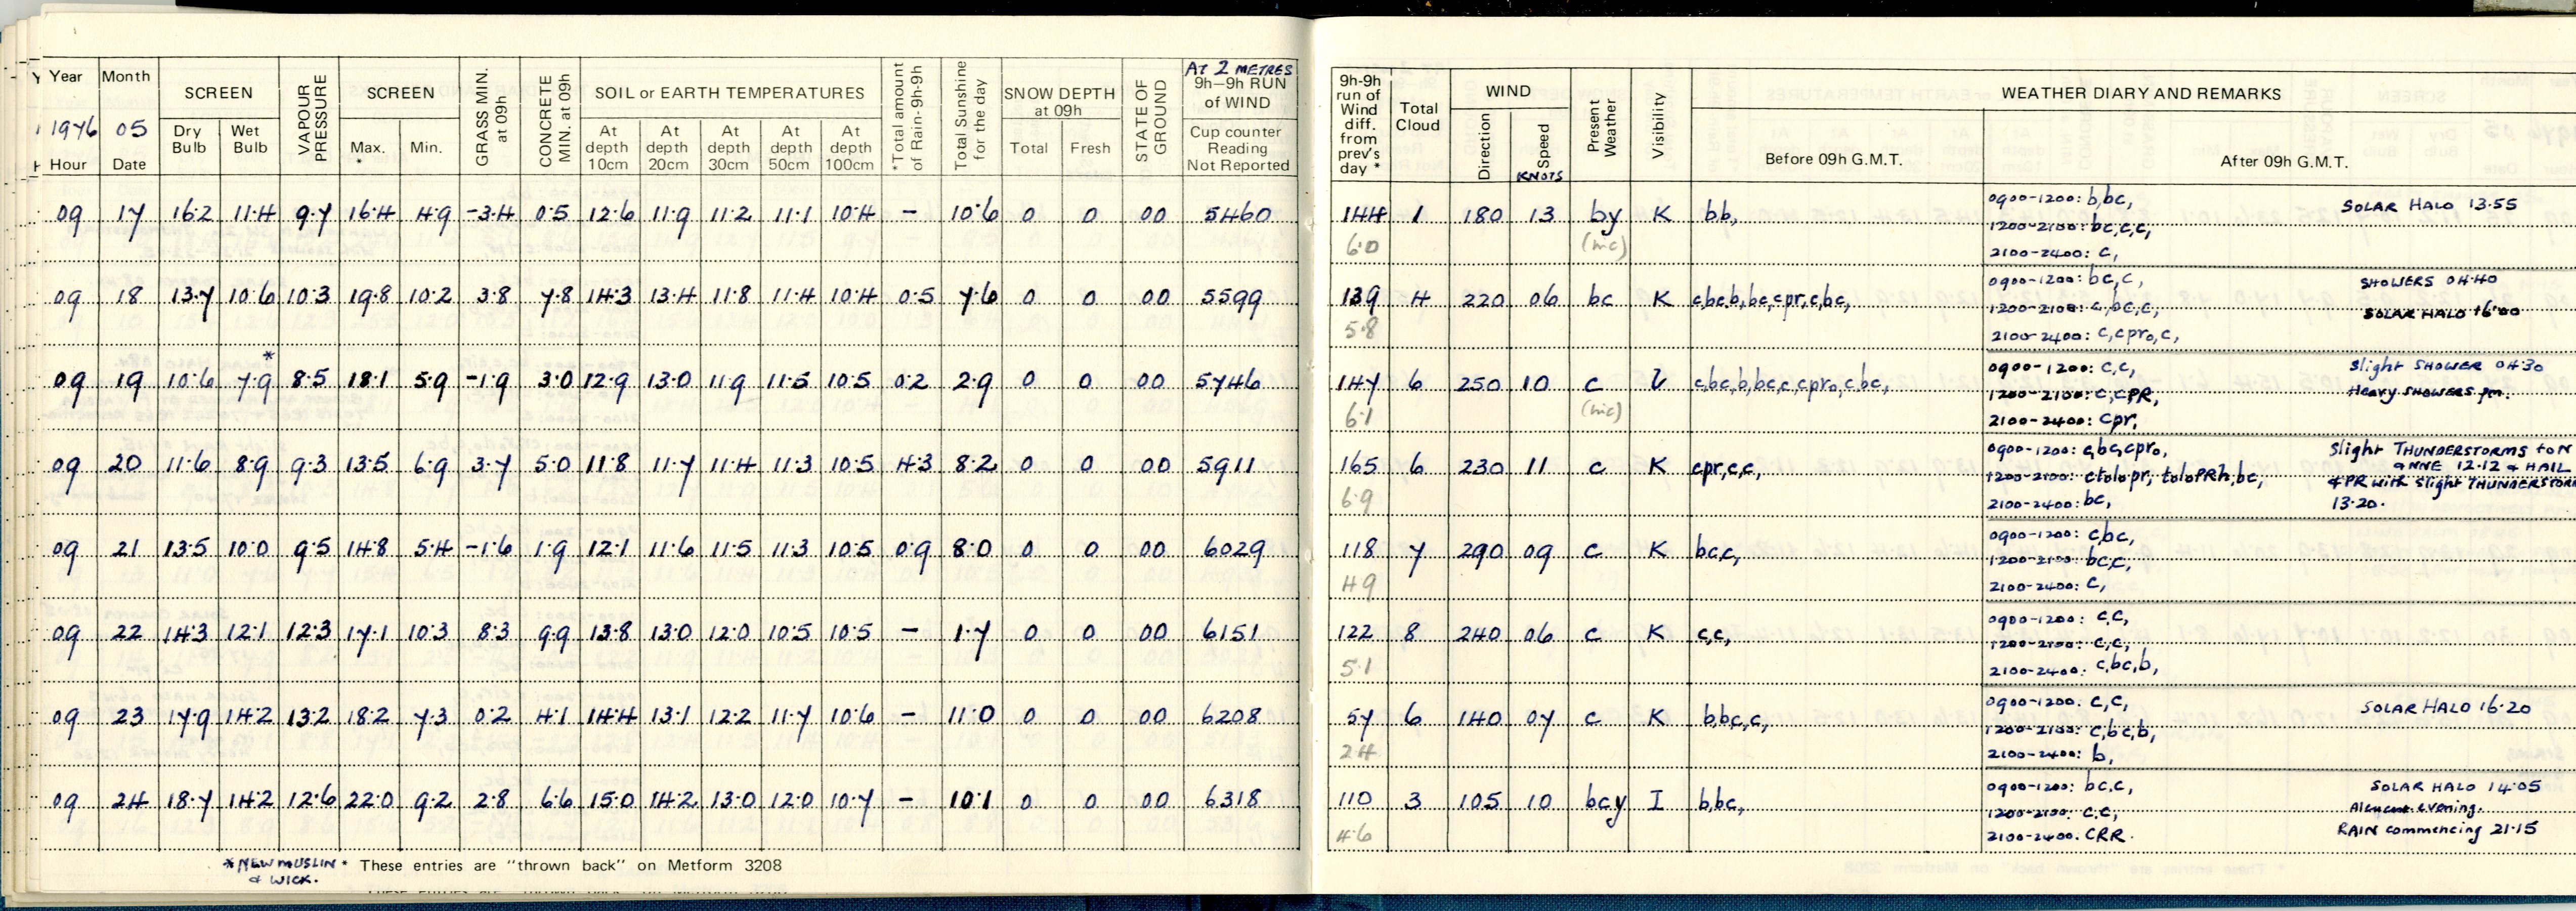 AT 2 METRES
Year Month SCREEN VAPOUR PRESSURE SCREEN GRASS MIN. at 09h CONCRETE MIN. at 09h SOIL or EARTH TEMPERATURES *Total amount of Rain-9h-9h Total Sunshine for the day SNOW DEPTH at 09h STATE OF GROUND 9h—9h RUN of WIND
1976 05 Dry Bulb Wet Bulb Max. * Min. At depth 10cm At depth 20cm At depth 30cm At depth 50cm At depth 100cm Total Fresh Cup counter Reading Not Reported
Hour Date
09 17 16·2 11·4 9·7 16·4 4·9 -3·4 0·5 12·6 11·9 11·2 11·1 10·4 – 10·6 0 0 00 5460
09 18 13·7 10·6 10·3 19·8 10·2 3·8 7·8 14·3 13·4 11·8 11·4 10·4 0·5 7·6 0 0 00 5599
*
09 19 10·6 7·9 8·5 18·1 5·9 -1·9 3·0 12·9 13·0 11·9 11·5 10·5 0·2 2·9 0 0 00 5746
09 20 11·6 8·9 9·3 13·5 6·9 3·7 5·0 11·8 11·7 11·4 11·3 10·5 4·3 8·2 0 0 00 5911
09 21 13·5 10·0 9·5 14·8 5·4 -1·6 1·9 12·1 11·6 11·5 11·3 10·5 0·9 8·0 0 0 00 6029
09 22 14·3 12·1 12·3 17·1 10·3 8·3 9·9 13·8 13·0 12·0 10·5 10·5 – 1·7 0 0 00 6151
09 23 17·9 14·2 13·2 18·2 7·3 0·2 4·1 14·4 13·1 12·2 11·7 10·6 – 11·0 0 0 00 6208
09 24 18·7 14·2 12·6 22·0 9·2 2·8 6·6 15·0 14·2 13·0 12·0 10·7 – 10·1 0 0 00 6318
*NEW MUSLIN & WICK.
* These entries are "thrown back" on Metform 3208
9h-9h run of Wind diff. from prev's day * Total Cloud WIND Present Weather Visibility WEATHER DIARY AND REMARKS
Direction Speed KNOTS Before 09h G.M.T. After 09h G.M.T.
144 1 180 13 by K bb, 0900-1200: b,bc, SOLAR HALO 13·55
6·0 (mc) 1200-2100: bc,c,c,
2100-2400: c,
139 4 220 06 bc K c,bc,b,bc,cpr,c,bc, 0900-1200: bc,c, SHOWERS 04·40
5·8 1200-2100: c,bc,c, SOLAR HALO 16·00
2100-2400: c,cpro,c,
147 6 250 10 c V c,bc,b,bc,c,cpro,c,bc, 0900-1200: c,c, Slight SHOWER 04·30
6·1 (mc) 1200-2100: c,cPR, Heavy SHOWERS pm.
2100-2400: cpr,
165 6 230 11 c K cpr,c,c, 0900-1200: c,bc,cpr, Slight THUNDERSTORMS to N
& NNE 12·12 & HAIL
6·9 1200-2100: ctolopr, toloPRh,bc, & PR with slight THUNDERSTOR
2100-2400: bc, 13·20.
118 7 290 09 c K bc,c, 0900-1200: c,bc,
4·9 1200-2100: bc,c,
2100-2400: c,
122 8 240 06 c K c,c, 0900-1200: c,c,
5·1 1200-2100: c,c,
2100-2400: c,bc,b,
57 6 140 07 c K b,bc,c, 0900-1200: c,c, SOLAR HALO 16·20
2·4 1200-2100: c,bc,b,
2100-2400: b,
110 3 105 10 bcy I b,bc, 0900-1200: bc,c, SOLAR HALO 14·05
4·6 1200-2100: c,c, evening.
2100-2400: CRR. RAIN commencing 21·15